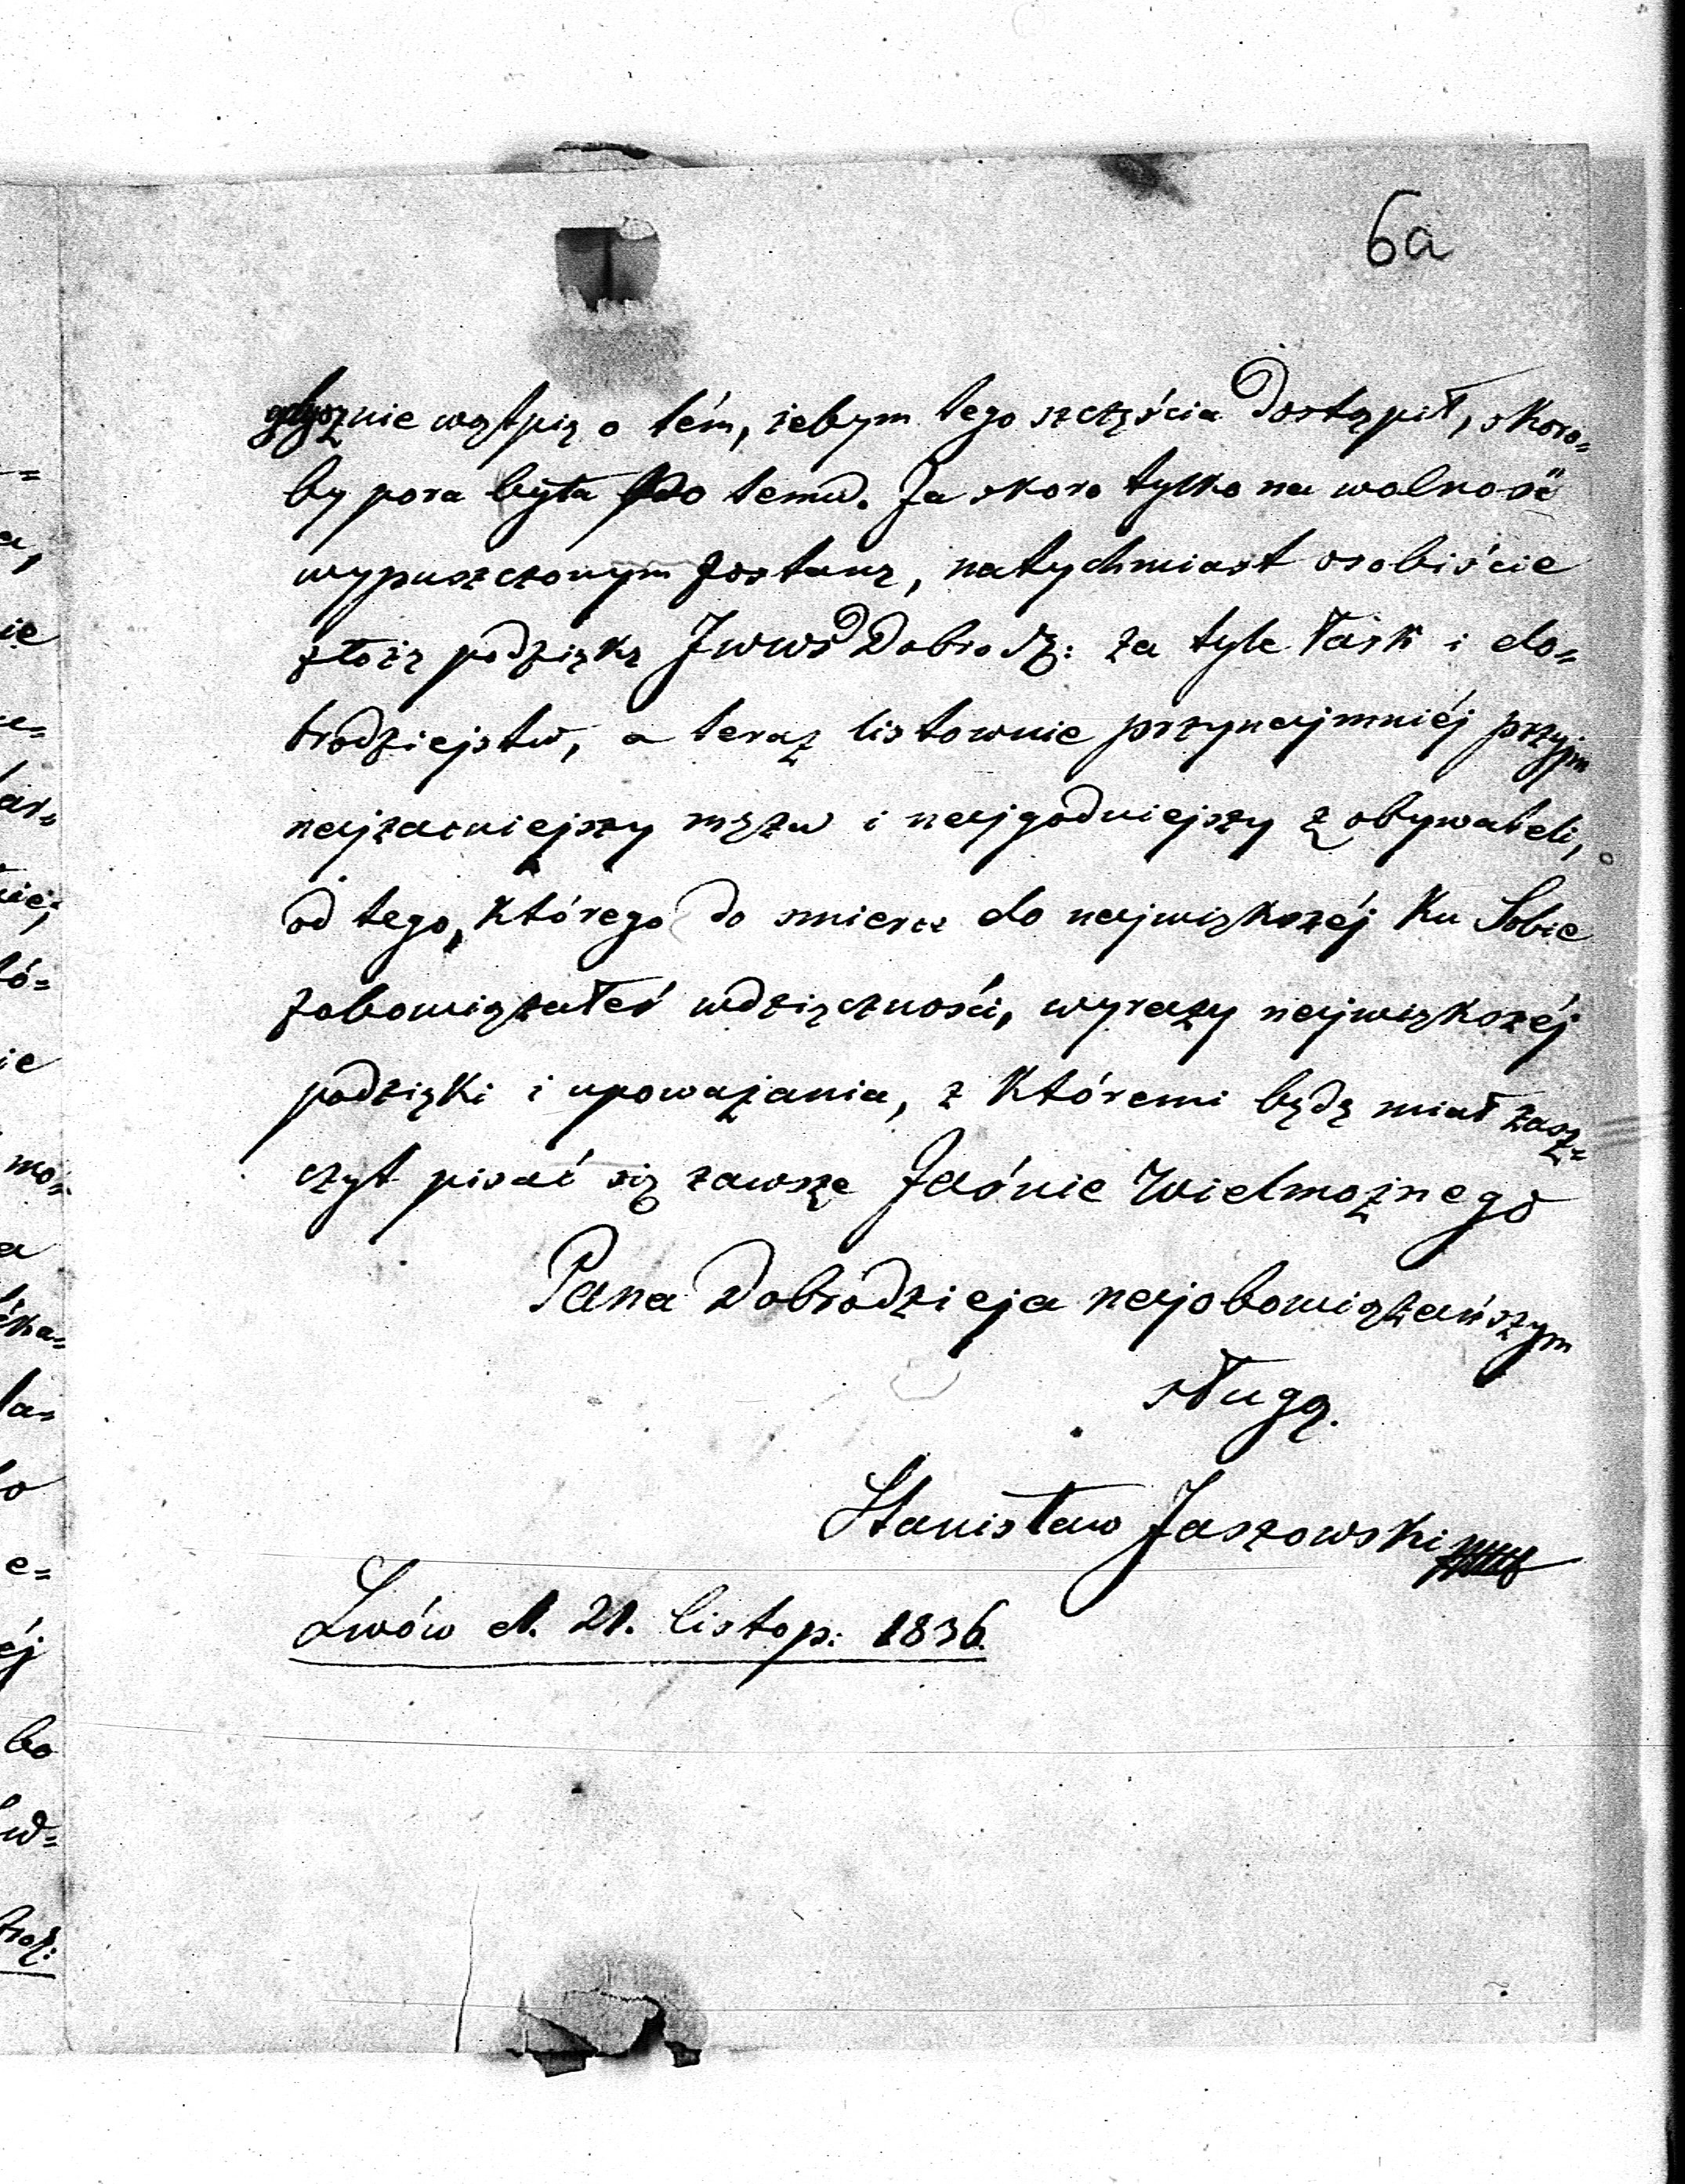 6a
gdyż nie wątpię o tém, żebym tego szczęścia dostąpił, skoro=
by pora była do temu. Ja skoro tylko na wolność
wypuszczonym zostanę, natychmiast osobiście
złożę podziękę JWWP Dobrodz: za tyle łask i do=
brodziejstw, a teraz listownie przynajmniéj przyjm
najzacniejszy mężu i najgodniejszy z obywateli,
od tego, którego do smierci do największéj ku Sobie
zobowiązałeś wdzięczności, wyrazy największéj
podzięki i upoważania, z któremi będę miał zasz=
czyt pisać się zawsze Jaśnie Wielmożnego
Pana Dobrodzieja najobowiązańszym
sługą.
Stanisław Jaszowski
Lwów d. 21. listop: 1836.